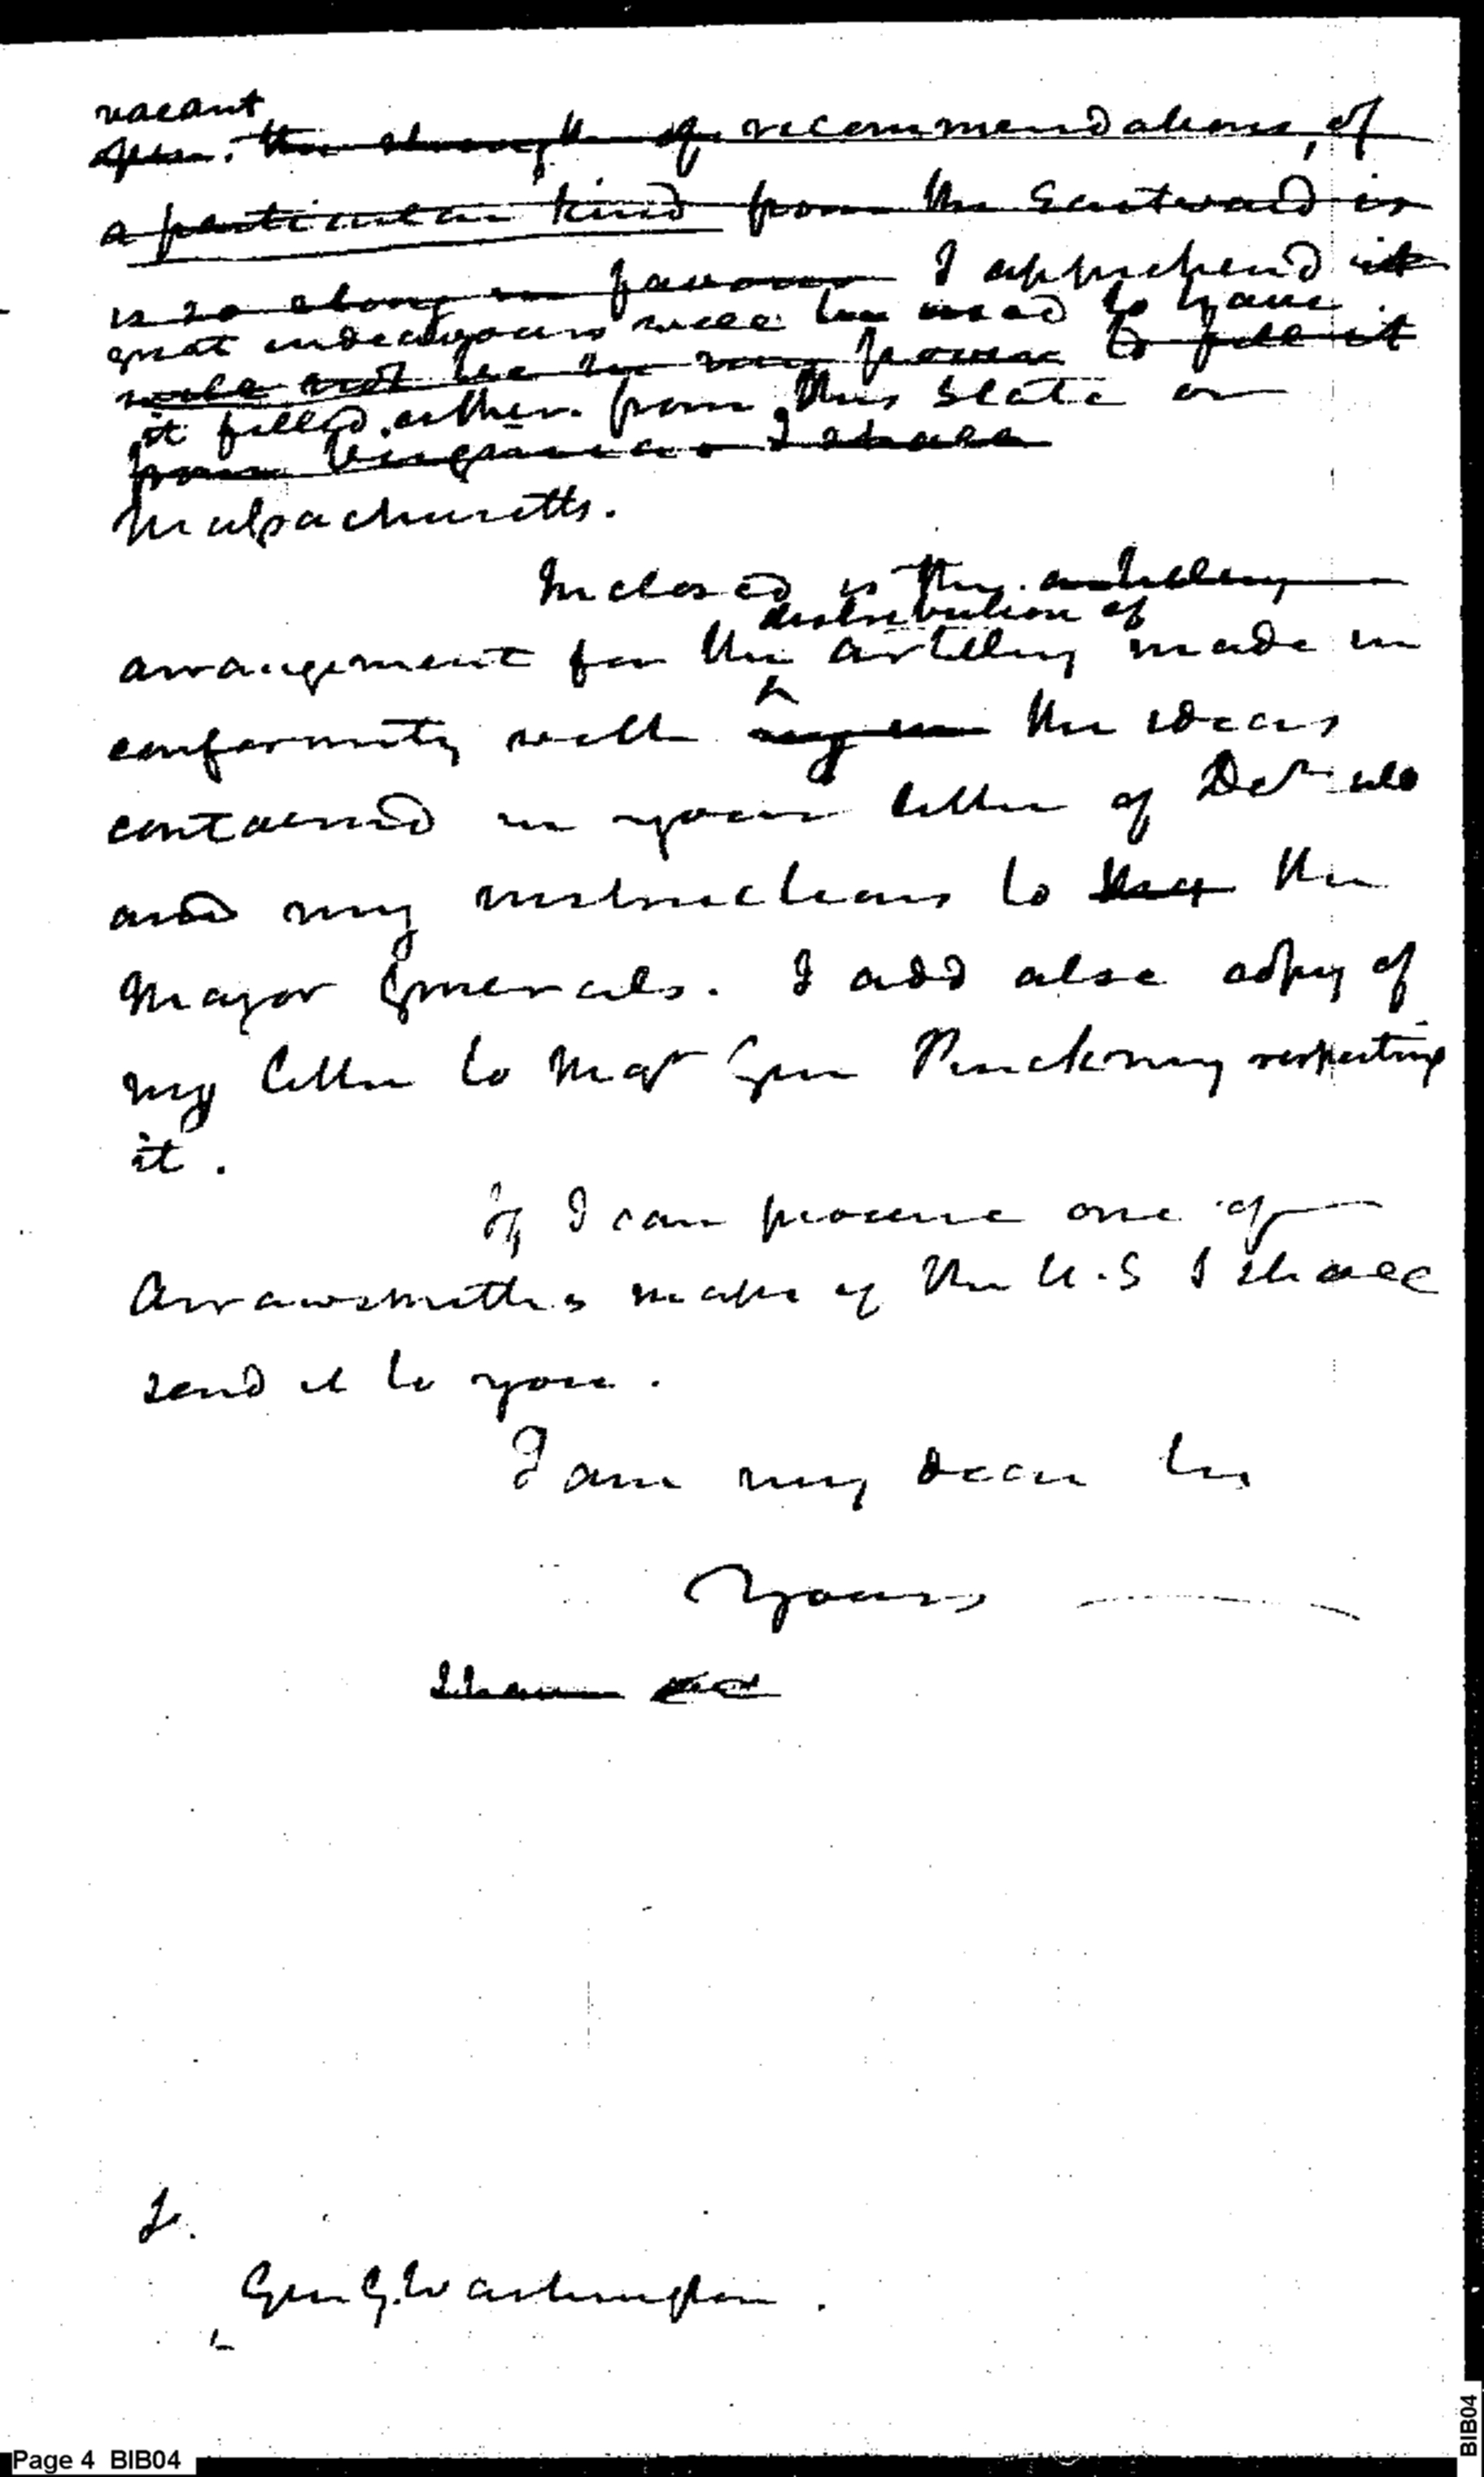 vacant
open. the strength of recommendations, of
a particular kind from the Eastward is
is so strong in favour I apprehend it
great endeavours will be used to have
will not be in my power to fill it
it filled either from this State or
from Virginia I shall
Massachusetts.
Inclosed is the artillery
distribution of
arrangement for the artillery made in
conformity with the ideas
contained in your letter of
and my instructions to that the
Major Generals. I add also copy of
my letter to Major Gen Pinckney respecting
it.
If I can procure one of
Arrowsmiths maps of the U.S I shall
send it to you.
I am my dear Sir
Yours
Gen G. Washington.
Page 4 BIB04
BIB04